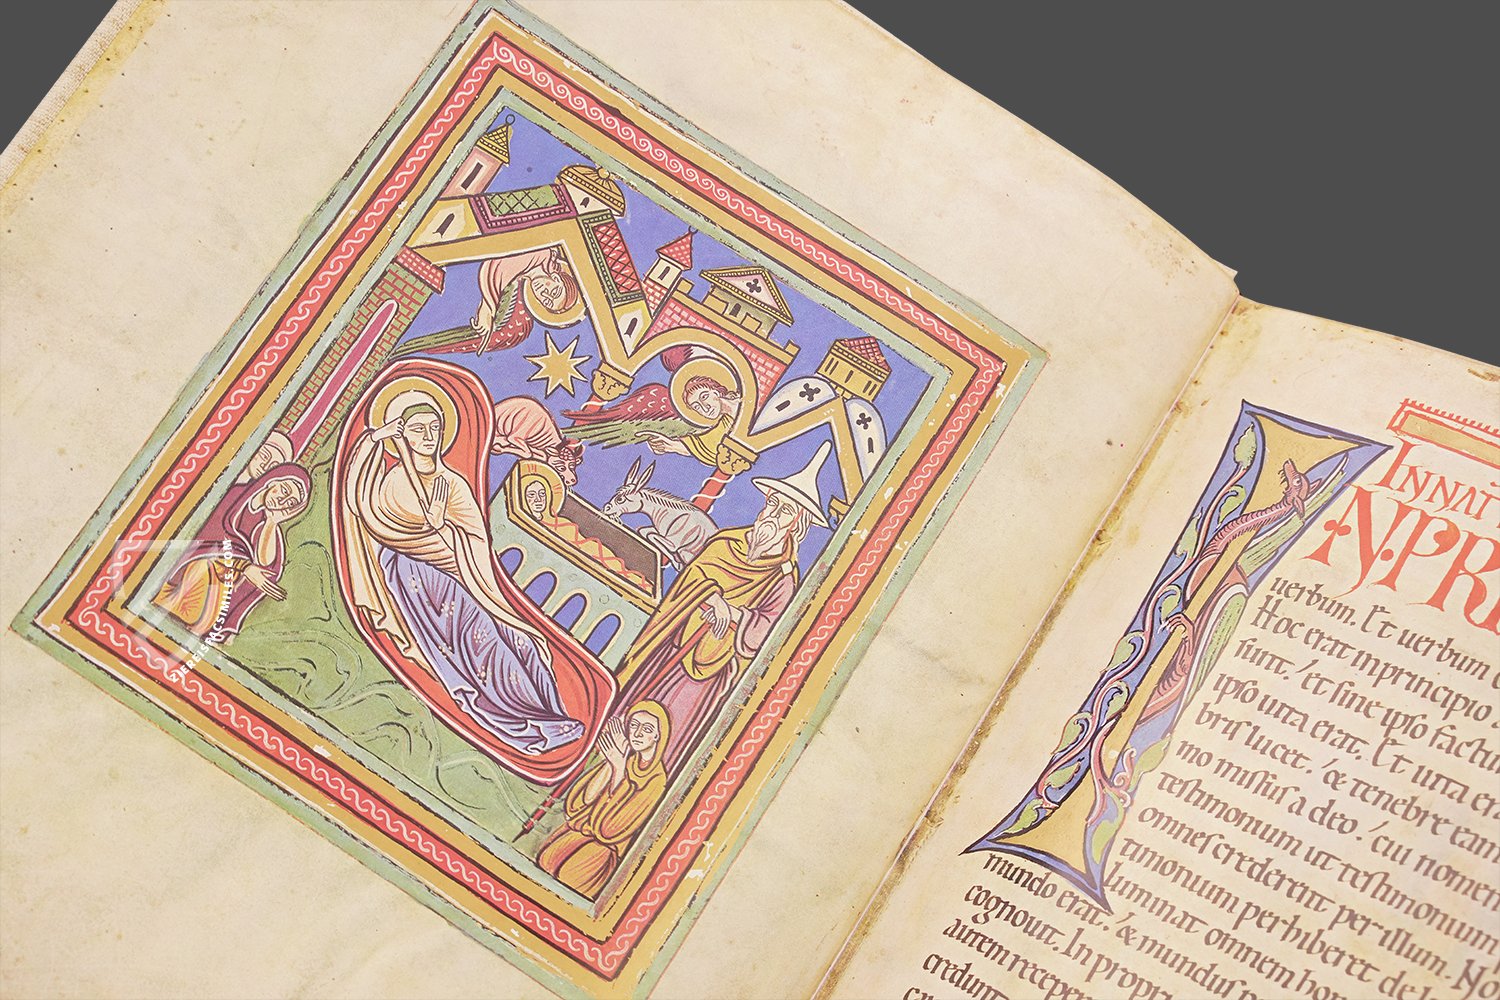 INNAT
N·PRI
uerbum. Et uerbum
Hoc erat inprincipio
sunt. et sine ipso factum
ipso uita erat. Et uita era
bris lucet. & tenebre eam
mo missus a deo. cui nomen
testimonium ut testimonium
omnes crederent per illum.
timonium perhiberet de lu
luminat omnem hom
mundo erat. & mundus p
cognouit. In propri
autem recepe
credunt
VIEREISFACSIMILES.COM